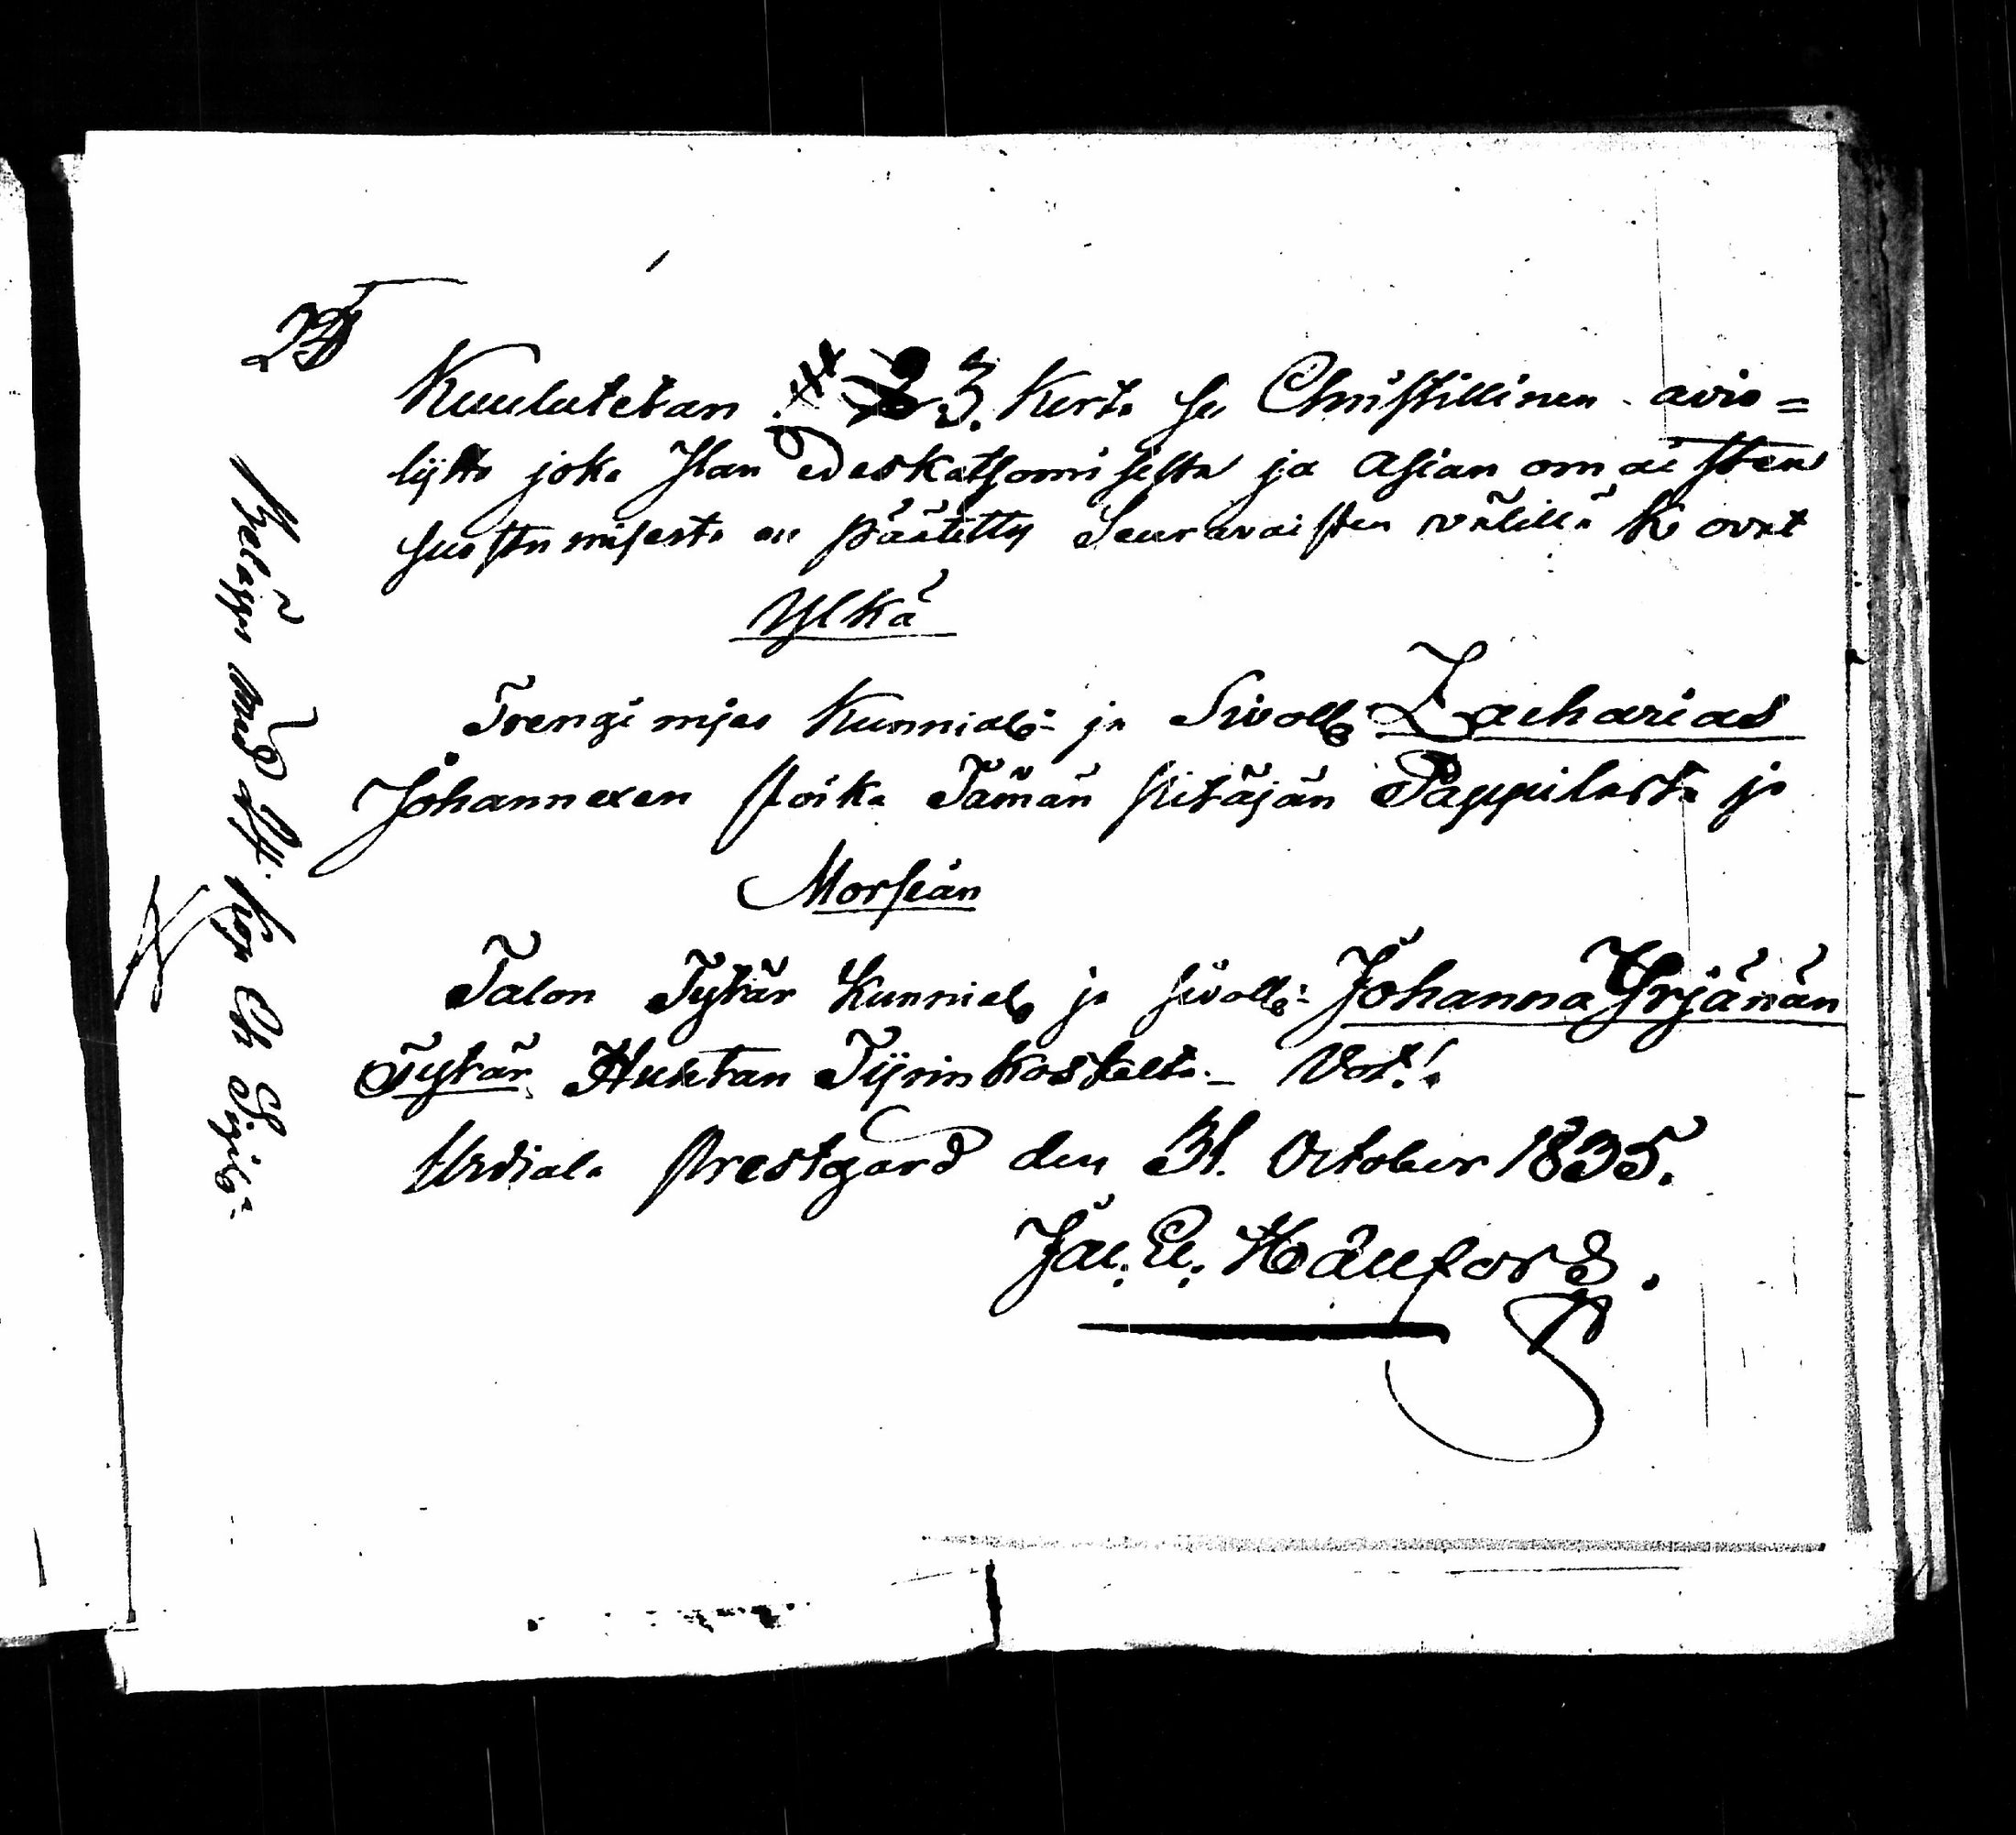 Kuulutetan 3. Kerta se Christillinen avio=
lijtto joka Isan edeskatsomisesta ja asian omaisten
suostumisesta on päätetty Seurawaisten wälillä K ovat
Ylkä
Trengi mjes Kunnial: ja Sivoll: Zacharias
Johannexen poika Tämän pitäjän Pappilasta ja
Morsian
Talon Tytär Kunnial: ja sivoll: Johanna Yrjänän
Tytär Huktan Tyrinkoskelta. Vot.
Urdiala Prestgård den 31. October 1835.
Jac. Ed. Hällfors.